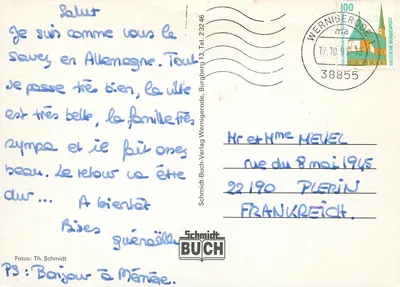 Salut
Je suis comme vous le
savez en Allemagne. Tout
se passe très bien, la ville
est très belle, la famille très
sympa et il fait assez
beau. Le retour va être
dur... A bientôt
Bises
guénaëlle
PS : Bonjour à Ménée.
Fotos: Th. Schmidt
Schmidt-Buch-Verlag Wernigerode, Burgberg 13, Tel. 23246
Schmidt
BUCH
100
WERNIGERODE
ma
38855
Mr et Mme MEVEL
rue du 8 mai 1945
22190 PLERIN
FRANKREICH.